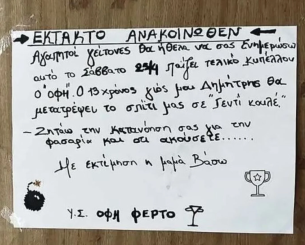 → ΕΚΤΑΚΤΟ ΑΝΑΚΟΙΝΩΘΕΝ ←
Αγαπητοί γείτονες θα ήθελα να σας ενημερώσω
αυτό το Σάββατο 25/4 παίζει τελικό κυπέλλου
ο ΟΦΗ. Ο 13 χρονος γιός μου Δημήτρης θα
μετατρέψει το σπίτι μας σε "Γεντί κουλέ."
- Ζητάω την κατανόηση σας για την
φασαρία και ότι ακούσετε......
Με εκτίμηση η μαμά Βάσω
Υ.Σ. ΟΦΗ ΦΕΡΤΟ